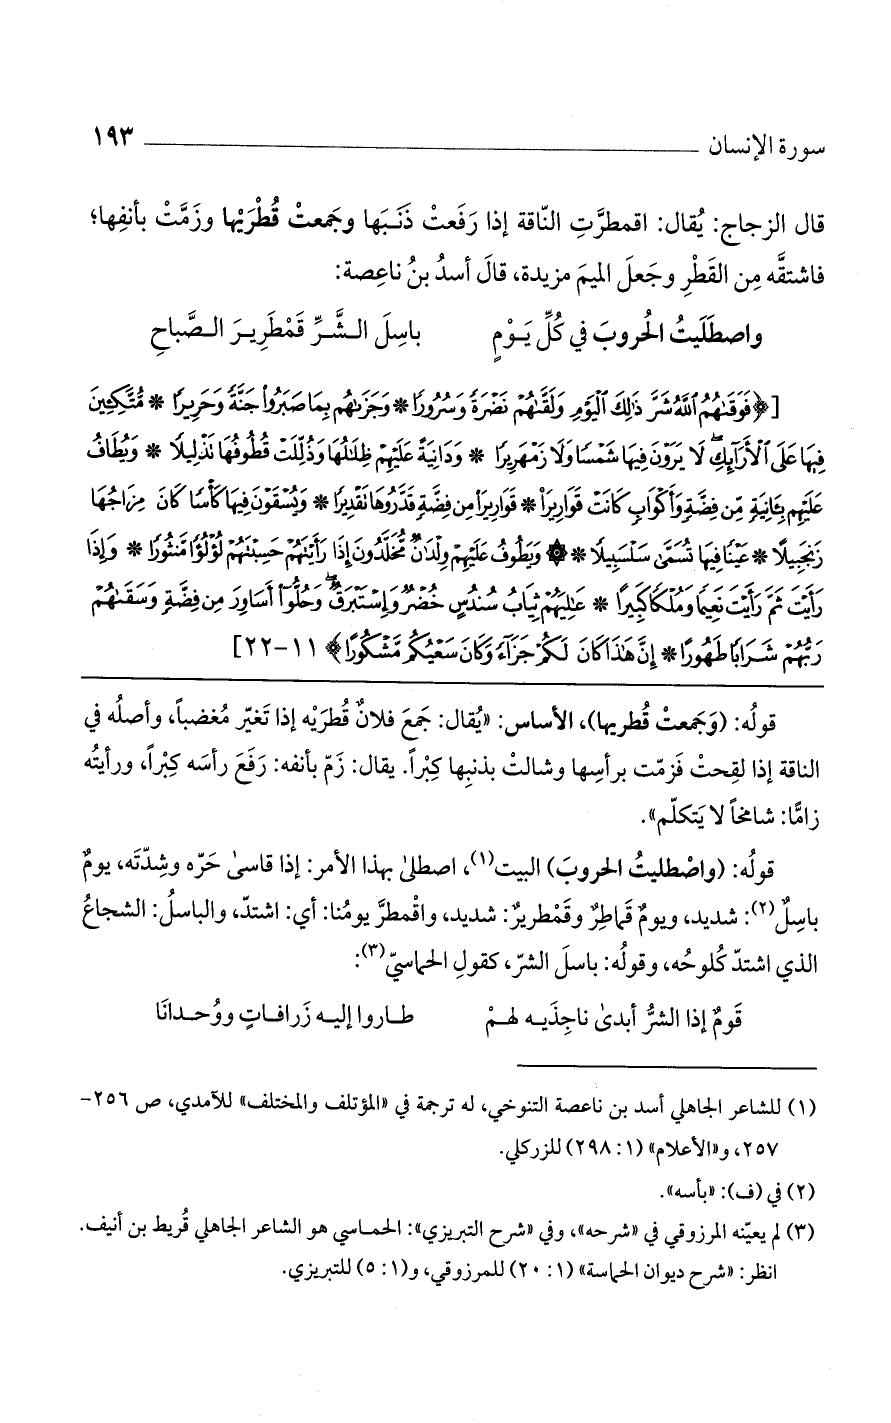 سورة الإنسان ١٩٣
قال الزجاج: يُقال: اقمطرَّتِ النّاقة إذا رَفَعتْ ذَنَبَها وجَمعتْ قُطْرَيْها وزَمَّتْ بأنفِها؛
فاشتقَّه مِن القَطْرِ وجَعلَ الميمَ مزيدة، قالَ أسدُ بنُ ناعِصة:
واصطَلَيتُ الحُروبَ في كُلِّ يَـوْمٍ باسِلَ الـشَّرِّ قَمْطَرِيـرَ الـصَّباحِ
[﴿فَوَقَىٰهُمُ ٱللَّهُ شَرَّ ذَٰلِكَ ٱلْيَوْمِ وَلَقَّىٰهُمْ نَضْرَةً وَسُرُورًا * وَجَزَىٰهُم بِمَا صَبَرُوا۟ جَنَّةً وَحَرِيرًا * مُّتَّكِـِٔينَ
فِيهَا عَلَى ٱلْأَرَآئِكِ ۖ لَا يَرَوْنَ فِيهَا شَمْسًا وَلَا زَمْهَرِيرًا * وَدَانِيَةً عَلَيْهِمْ ظِلَٰلُهَا وَذُلِّلَتْ قُطُوفُهَا تَذْلِيلًا * وَيُطَافُ
عَلَيْهِم بِـَٔانِيَةٍ مِّن فِضَّةٍ وَأَكْوَابٍ كَانَتْ قَوَارِيرَا۠ * قَوَارِيرَا۟ مِن فِضَّةٍ قَدَّرُوهَا تَقْدِيرًا * وَيُسْقَوْنَ فِيهَا كَأْسًا كَانَ مِزَاجُهَا
زَنجَبِيلًا * عَيْنًا فِيهَا تُسَمَّىٰ سَلْسَبِيلًا * ۞ وَيَطُوفُ عَلَيْهِمْ وِلْدَٰنٌ مُّخَلَّدُونَ إِذَا رَأَيْتَهُمْ حَسِبْتَهُمْ لُؤْلُؤًا مَّنثُورًا * وَإِذَا
رَأَيْتَ ثَمَّ رَأَيْتَ نَعِيمًا وَمُلْكًا كَبِيرًا * عَٰلِيَهُمْ ثِيَابُ سُندُسٍ خُضْرٌ وَإِسْتَبْرَقٌ ۖ وَحُلُّوٓا۟ أَسَاوِرَ مِن فِضَّةٍ وَسَقَىٰهُمْ
رَبُّهُمْ شَرَابًا طَهُورًا * إِنَّ هَٰذَا كَانَ لَكُمْ جَزَآءً وَكَانَ سَعْيُكُم مَّشْكُورًا﴾ ١١-٢٢]
قولُه: (وَجَمعتْ قُطريها)، الأساس: «يُقال: جَمَعَ فلانٌ قُطرَيْه إذا تَغيّر مُغضباً، وأصلُه في
الناقة إذا لقِحتْ فَزمّت برأسِها وشالتْ بذنبِها كِبْراً. يقال: زَمّ بأنفه: رَفَعَ رأسَه كِبْراً، ورأيتُه
زامًّا: شامخاً لا يَتكلّم».
قولُه: (واصْطليتُ الحروبَ) البيت(١)، اصطلىٰ بهذا الأمر: إذا قاسىٰ حَرّه وشِدّتَه، يومٌ
باسِلٌ(٢): شديد، ويومٌ قُماطِرٌ وقَمْطريرٌ: شديد، واقْمطرَّ يومُنا: أي: اشتدّ، والباسلُ: الشجاعُ
الذي اشتدّ كُلوحُه، وقولُه: باسلَ الشرّ، كقولِ الحماسيّ(٣):
قَومٌ إذا الشرُّ أبدىٰ ناجِذَيـه لهـمْ طـاروا إليـه زَرافـاتٍ ووُحـدانَا
(١) للشاعر الجاهلي أسد بن ناعصة التنوخي، له ترجمة في «المؤتلف والمختلف» للآمدي، ص ٢٥٦-
٢٥٧، و«الأعلام» (١: ٢٩٨) للزركلي.
(٢) في (ف): «بأسه».
(٣) لم يعيّنه المرزوقي في «شرحه»، وفي «شرح التبريزي»: الحمـاسي هو الشاعر الجاهلي قُريط بن أنيف.
انظر: «شرح ديوان الحماسة» (١: ٢٠) للمرزوقي، و(١: ٥) للتبريزي.